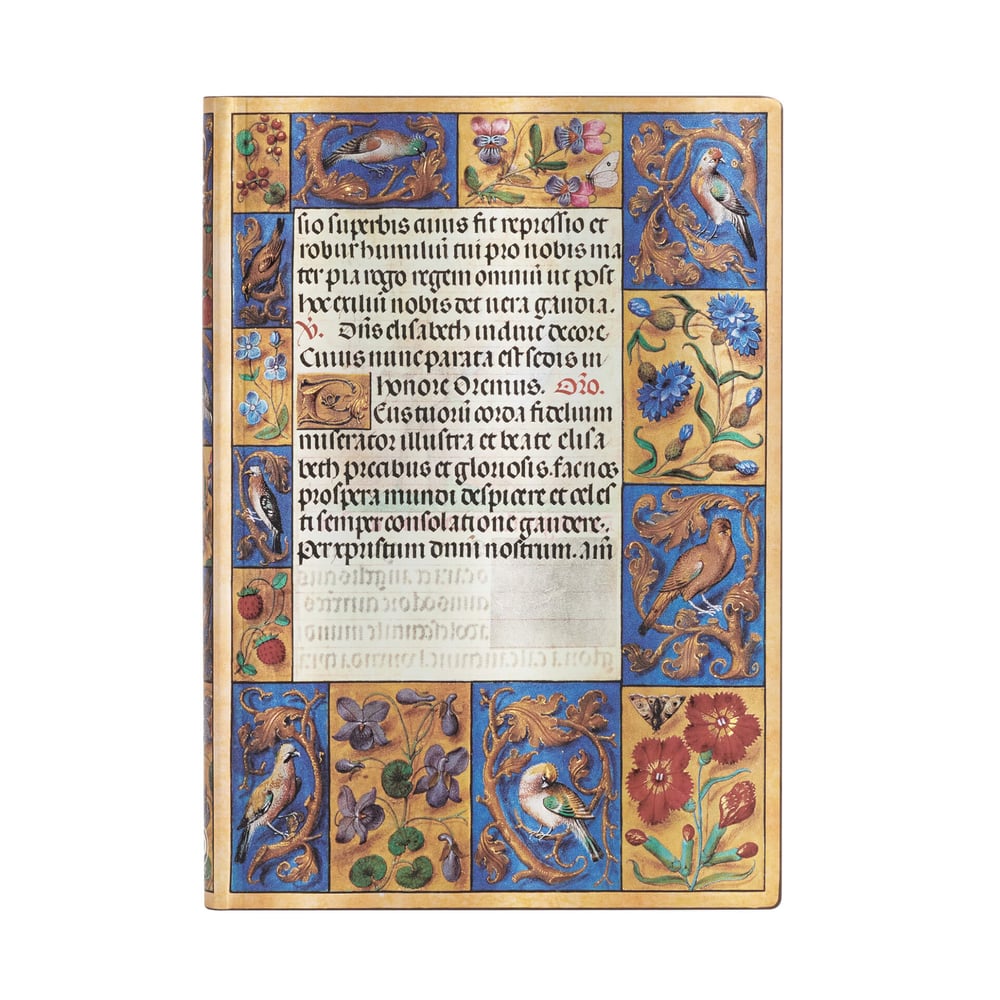 sio superbis cuius fit repressio et
robur humiliũ tui pro nobis ma
ter pia rogo regem omniũ ut post
hoc exiliũ nobis det uera gaudia.
V. Dñs elisabeth induit decore.
Cuius nunc parata est sedis in
honore Oremus. Orõ.
Deus tuorũ corda fidelium
miserator illustra et beate elisa
beth precibus et gloriosis. fac nos
prospera mundi despicere et celes
ti semper consolatione gaudere.
Per xpristum dnm̃ nostrum. am̃